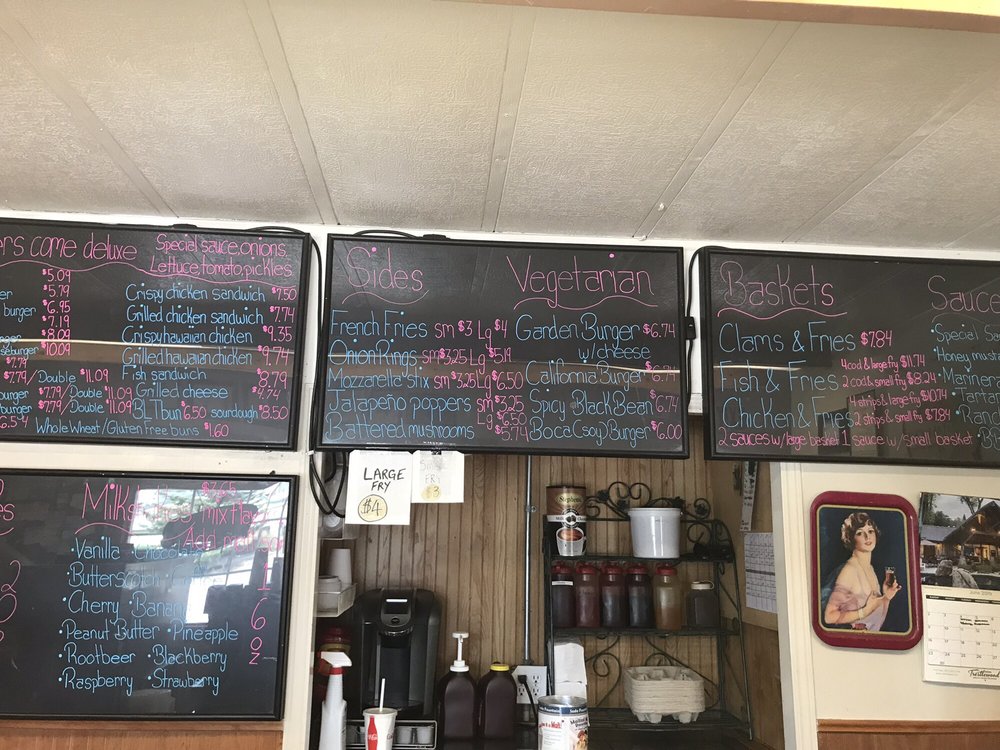 ers come deluxe
Special sauce, onions
Lettuce, tomato, pickles
$5.09
$5.79
burger $6.95
$7.19
$8.09
$10.09
$7.79
$7.79/Double $11.09
burger $7.79/Double $11.09
burger $7.79/Double $11.09
6.54
Crispy chicken sandwich $7.50
Grilled chicken sandwich $7.74
Crispy hawaiian chicken $9.35
Grilled hawaiian chicken $9.74
Fish sandwich $8.79
Grilled cheese $4.74
BLT bun $6.50 sourdough $8.50
Whole Wheat/Gluten Free buns $1.60
Sides
French Fries sm $3 Lg $4
Onion Rings sm $3.25 Lg $5.19
Mozzarella stix sm $3.25 Lg $6.50
Jalapeño poppers sm $3.25 Lg $6.50
Battered mushrooms $5.74
Vegetarian
Garden Burger $6.74
w/cheese
California Burger $6.74
Spicy Black Bean $6.74
Boca (soy) Burger $6.00
Baskets
Clams & Fries $7.84
Fish & Fries 4 cod & large fry $11.74
2 cod & small fry $8.24
Chicken & Fries 4 strips & large fry $10.74
2 strips & small fry $7.84
2 sauces w/large basket 1 sauce w/small basket
Sauce
Special Sau
Honey musta
Marinara
Tartar
Ranc
Milks
• Vanilla Chocolate
• Butterscotch
• Cherry Banan
• Peanut Butter • Pineapple
• Rootbeer • Blackberry
• Raspberry • Strawberry
16 oz
LARGE
FRY
$4
FRY
$3
Stephens
June 2019
Trestlewood